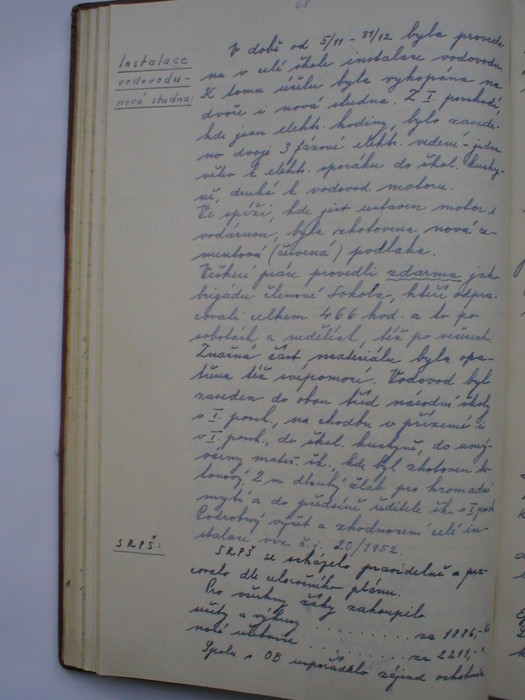 68
Instalace
vodovodu -
nová studna:
V době od 5/11 - 31/12 byla provede-
na v celé škole instalace vodovodu.
K tomu účelu byla vykopána na
dvoře i nová studna. Z I. poschodí,
kde jsou elektr. hodiny, bylo zavede-
no dvojí 3 fázové elektr. vedení - jedna
větev k elektr. sporáku do škol. kuchy-
ně, druhá k vodovod. motoru.
Ve spíži, kde jest ustaven motor s
vodárnou, byla zhotovena nová ce-
mentová (červená) podlaha.
Veškeré práce provedli zdarma jako
brigádu členové Sokola, kteří odpra-
covali celkem 466 hod. a to po
sobotách a nedělích, též po večerech.
Značná část materiálu byla opa-
třena též svépomocí. Vodovod byl
zaveden do obou tříd národní školy
v I. posch., na chodbu v přízemí i
v I. posch., do škol. kuchyně, do umý-
várny mateř. šk., kde byl zhotoven be-
tonový, 2 m dlouhý žlab pro hromadné
mytí a do předsíně ředitele šk. v I. posch.
Podrobný výčet a zhodnocení celé in-
stalace viz č. j. 20/1952.
SRPŠ:
SRPŠ se scházelo pravidelně a pra-
covalo dle celoročního plánu.
Pro všechny žáky zakoupilo
sešity a výkresy . . . . . . . . . za 1886,-
nové učebnice . . . . . . . . . za 2211,-
Spolu s OB uspořádalo zájezd